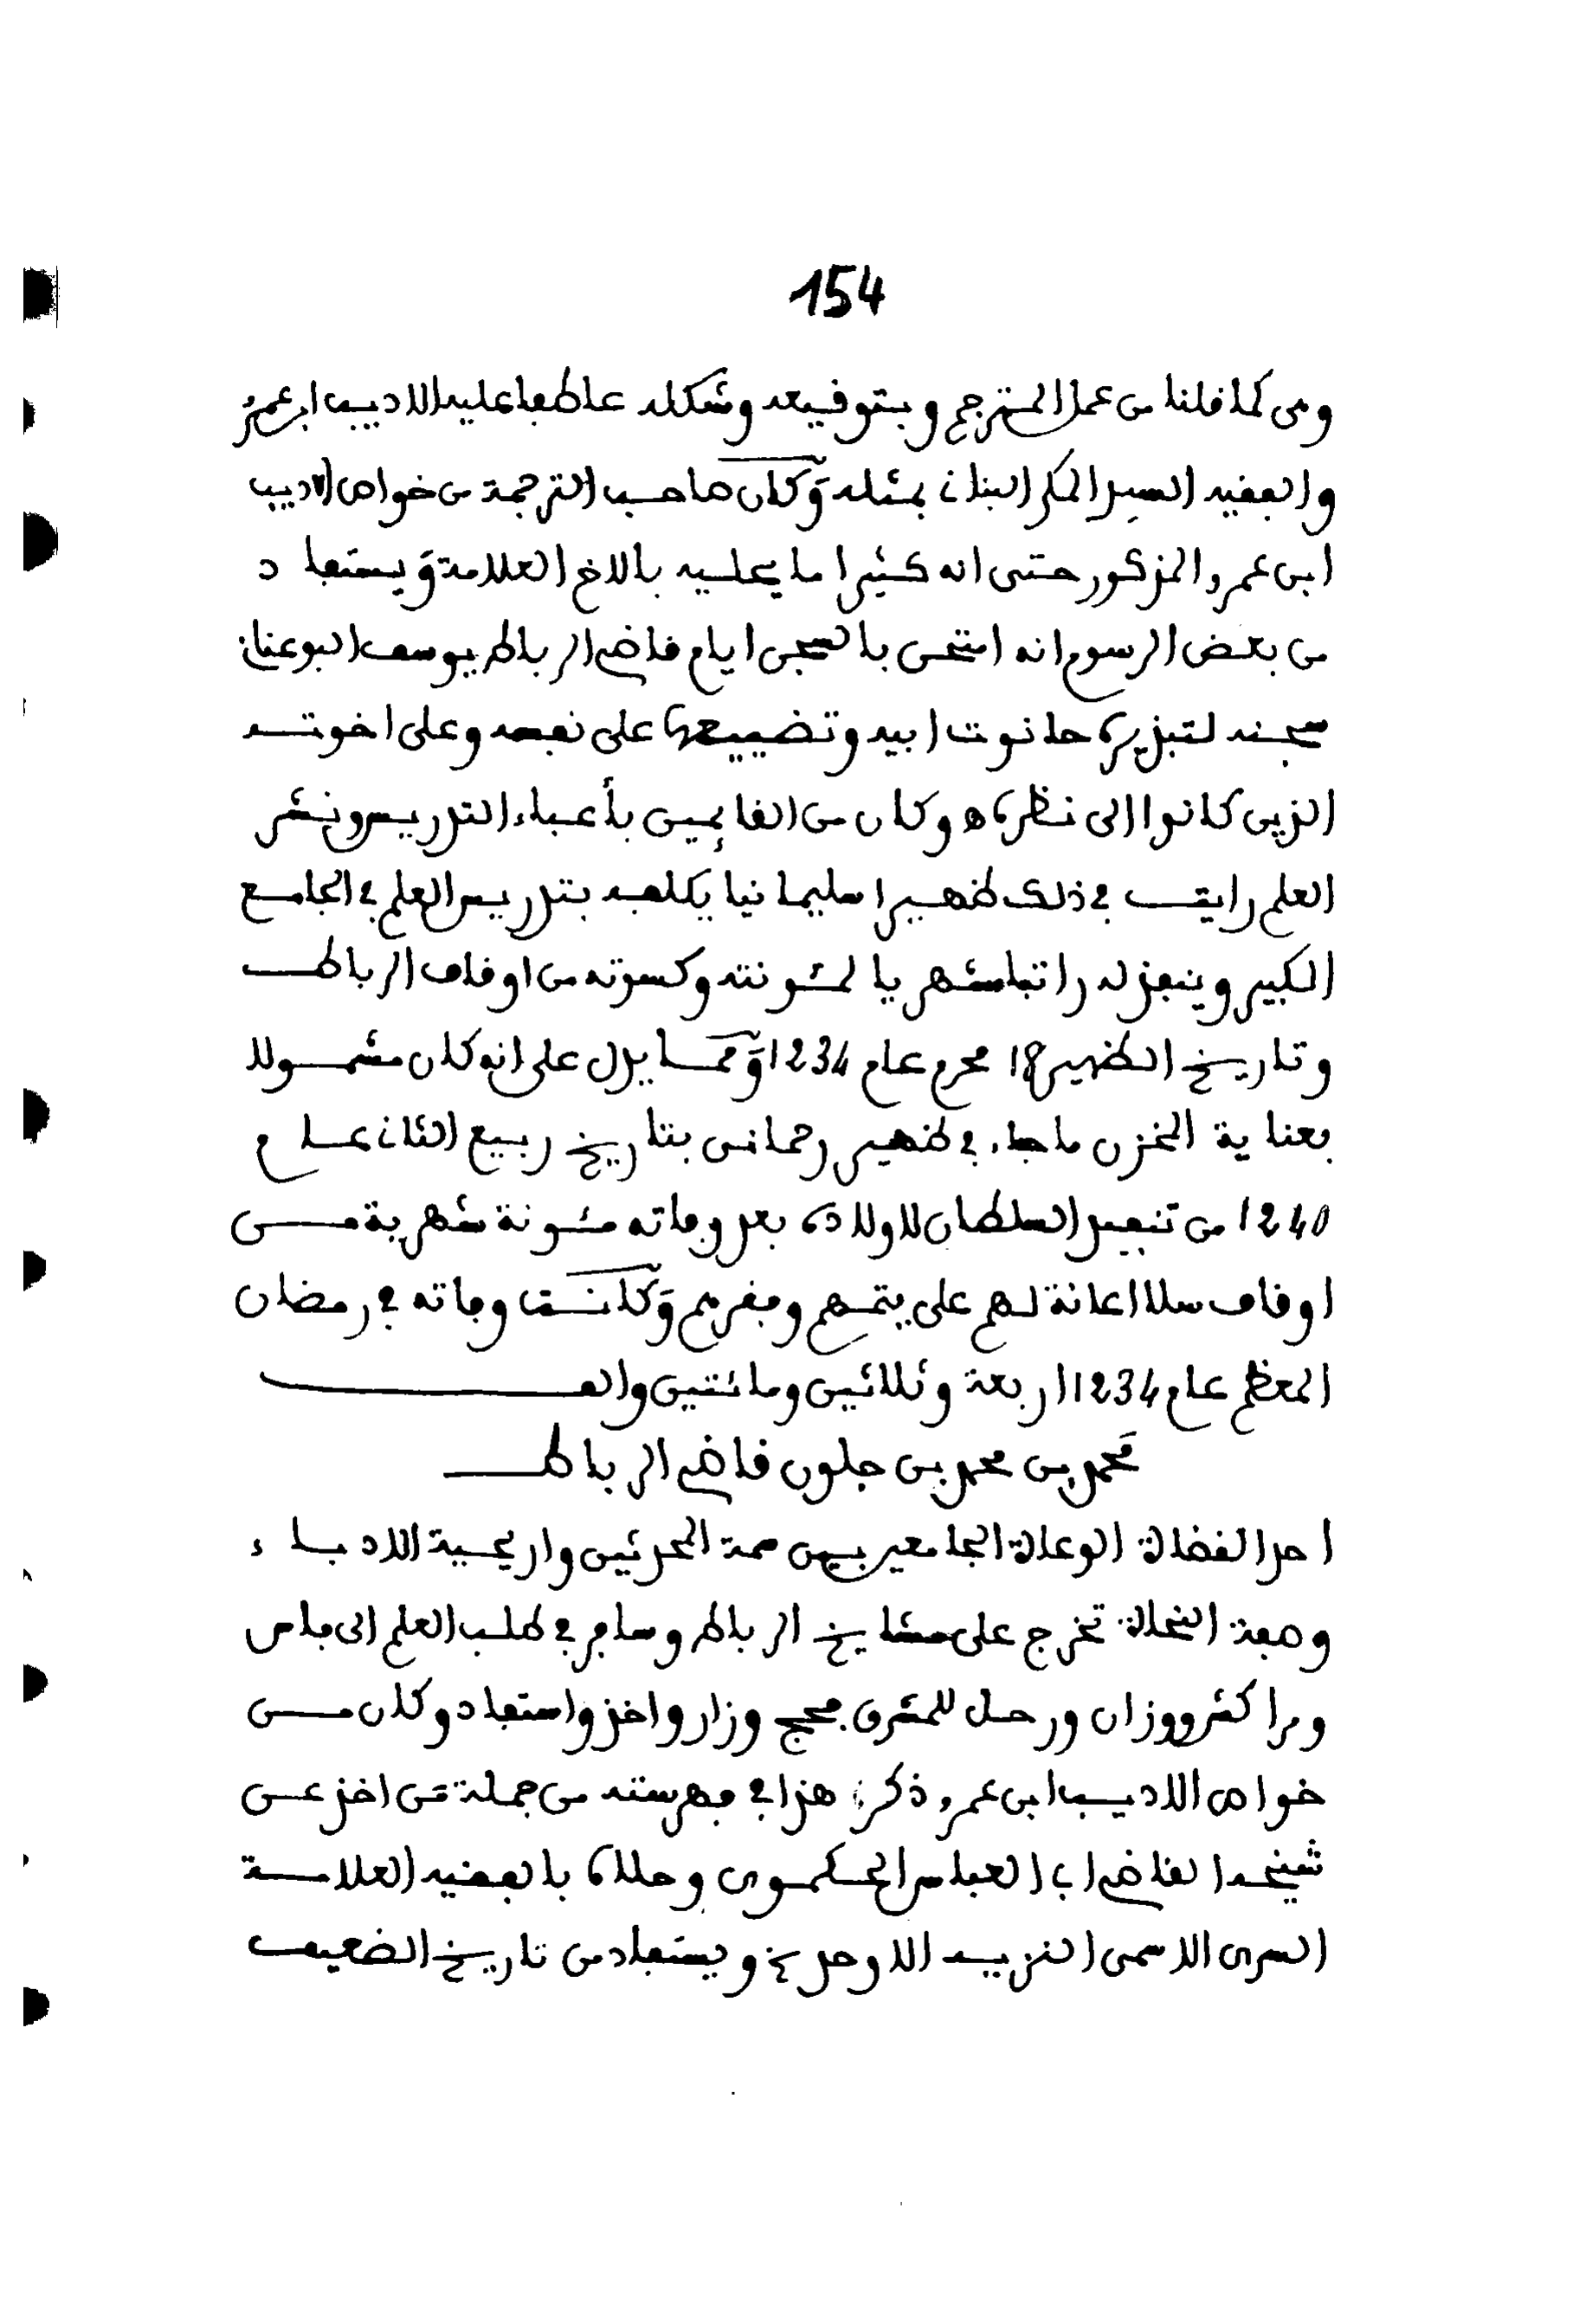 154
وهى كما قلنا من عمل المترجم وبتوقيعه وشكله عاطفا عليه الاديب ابو عمرو
والفقيه السيد المكى البنانى بمثله وكان صاحب الترجمة من خواص الاديب
ابى عمرو المذكور حتى انه كثيرا ما يحليه بالاخ العلامة ويستفاد
من بعض الرسوم انه امتحن بالسجن ايام قاضى الرباط يوسف ابو عنان
سجنه لتبذيره حانوت ابيه وتضييعها على نفسه وعلى اخوته
الذين كانوا الى نظره ه وكان من القائمين بأعباء التدريس ونشر
العلم رايت فى ذلك ظهيرا سليمانيا يكلفه بتدريس العلم فى الجامع
الكبير وينفذ له راتبا شهريا لمئونته وكسوته من اوقاف الرباط
وتاريخ الظهير 18 محرم عام 1234 ومما يدل على انه كان مشمولا
بعناية المخزن ما جاء فى ظهير رحمانى بتاريخ ربيع الثانى عام
1240 من تنفيذ السلطان لاولاده بعد وفاته مئونة شهرية من
اوقاف سلا اعانة لهم على يتمهم وفقرهم وكانت وفاته فى رمضان
المعظم عام 1234 اربعة وثلاثين ومائتين والف
محمد بن محمد بن جلون قاضى الرباط
احد القضاة الوعاة الجامعين بين سمة المحدثين واريحية الادباء
وصفة النحاة تخرج على مشايخ الرباط وسافر فى طلب العلم الى فاس
ومراكش ووزان ورحل للمشرق فحج وزار واخذ واستفاد وكان من
خواص الاديب ابى عمرو ذكره هذا فى فهرسته من جملة من اخذ عن
شيخه القاضى ابى العباس الحكموى وحلاه بالفقيه العلامة
السرى الاسمى النزيه الاوحد الخ ويستفاد من تاريخ الضعيف